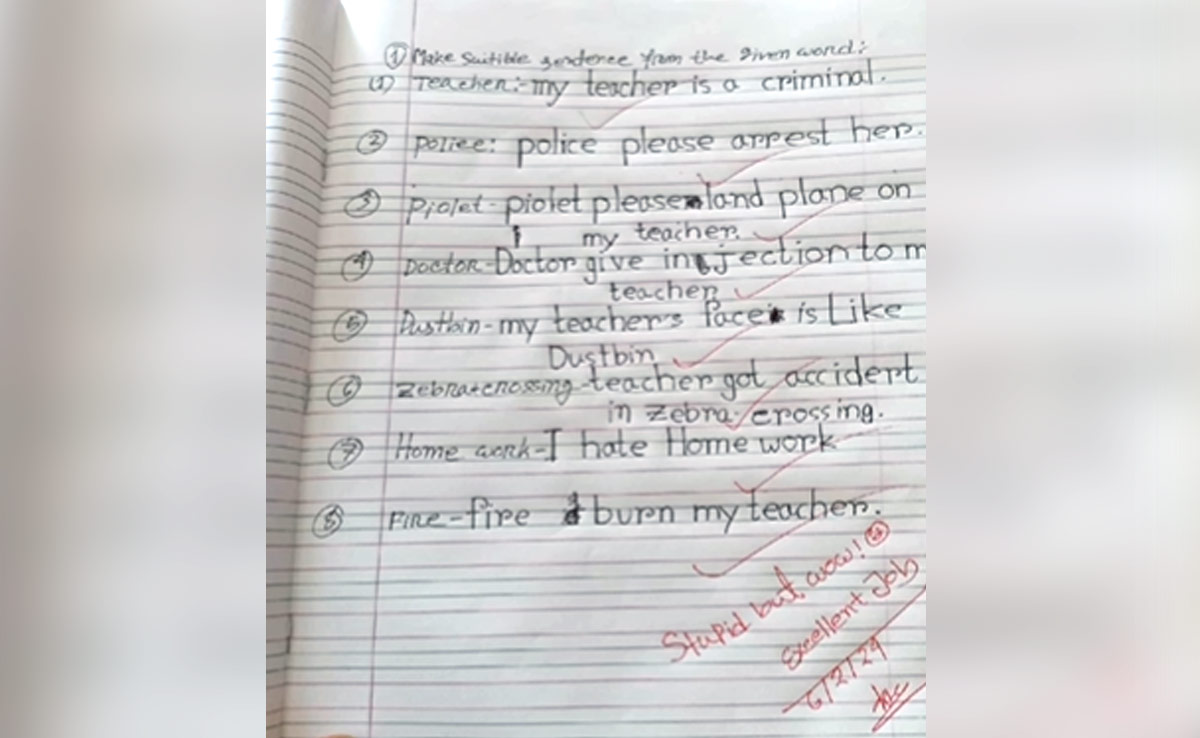 ① Make Suitible sentence from the given word:
(1) Teacher:- my teacher is a criminal.
② Police: police please arrest her.
③ Piolet - piolet please land plane on
my teacher.
④ Doctor - Doctor give injection to m
teacher
⑤ Dustbin - my teacher's face is Like
Dustbin
⑥ Zebra crossing - teacher got accident
in zebra crossing.
⑦ Home work - I hate Home work
⑧ Fire - fire burn my teacher.
Stupid but, wow!
Excellent Job
6/2/24